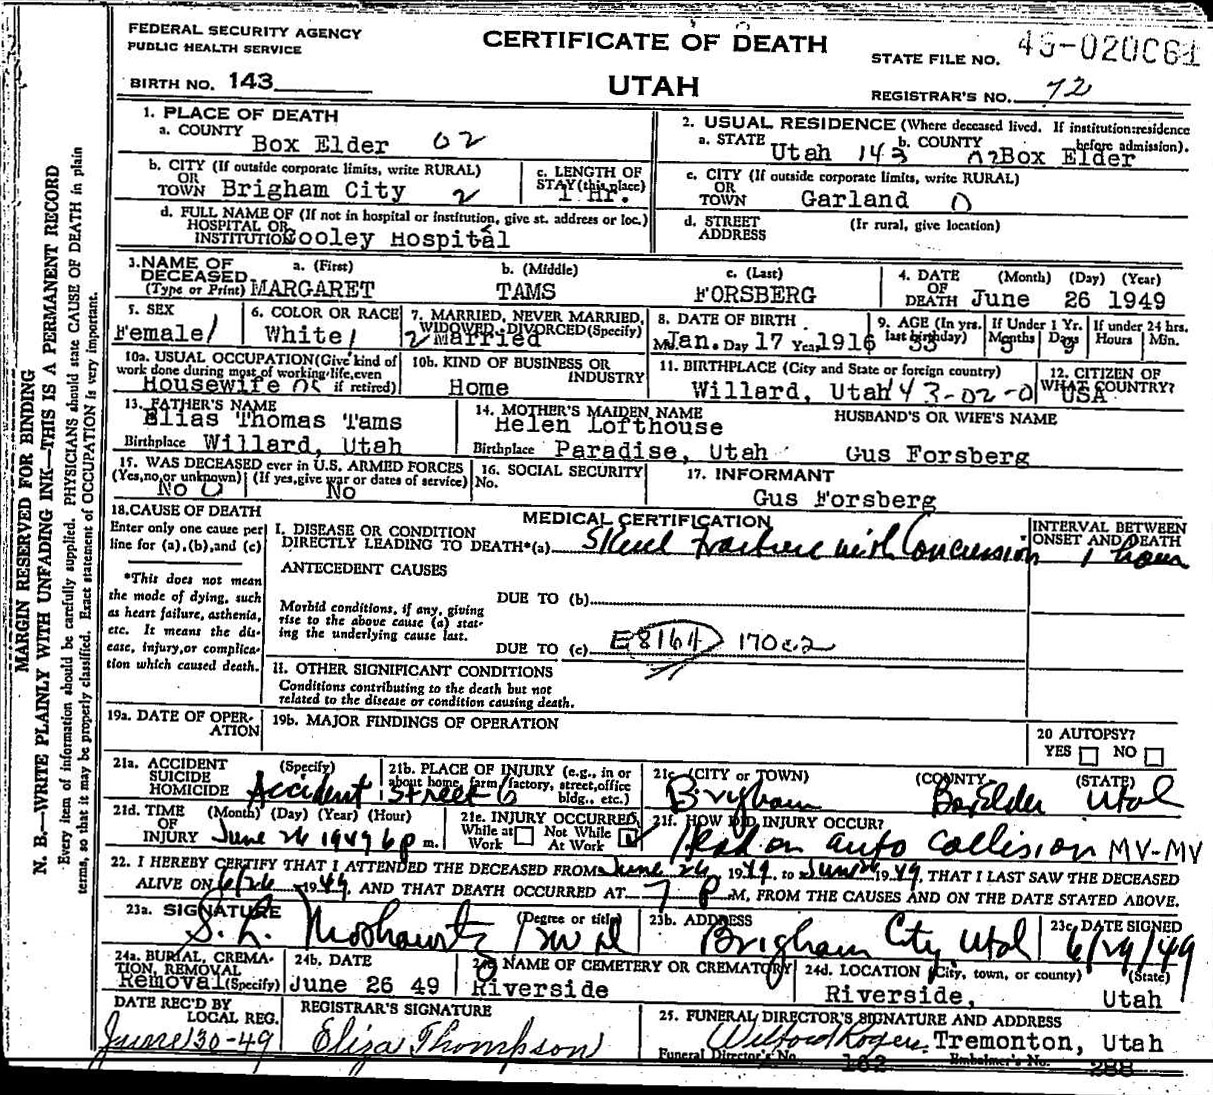 FEDERAL SECURITY AGENCY
PUBLIC HEALTH SERVICE
CERTIFICATE OF DEATH
STATE FILE NO.
BIRTH NO. 143
UTAH
REGISTRAR'S NO. 72
MARGIN RESERVED FOR BINDING
N. B.—WRITE PLAINLY WITH UNFADING INK—THIS IS A PERMANENT RECORD
Every item of information should be carefully supplied. PHYSICIANS should state CAUSE OF DEATH in plain
terms, so that it may be properly classified. Exact statement of OCCUPATION is very important.
1. PLACE OF DEATH
a. COUNTY
Box Elder 02
b. CITY (If outside corporate limits, write RURAL)
OR
TOWN Brigham City 2
c. LENGTH OF
STAY (this place)
1 Hr.
d. FULL NAME OF (If not in hospital or institution, give st. address or loc.)
HOSPITAL OR
INSTITUTION Cooley Hospital
2. USUAL RESIDENCE (Where deceased lived. If institution: residence
before admission).
a. STATE Utah 143 b. COUNTY Box Elder
c. CITY (If outside corporate limits, write RURAL)
OR
TOWN Garland 0
d. STREET (If rural, give location)
ADDRESS
3. NAME OF
DECEASED
(Type or Print)
a. (First) MARGARET
b. (Middle) TAMS
c. (Last) FORSBERG
4. DATE (Month) (Day) (Year)
OF
DEATH June 26 1949
5. SEX
Female 1
6. COLOR OR RACE
White 1
7. MARRIED, NEVER MARRIED,
WIDOWED, DIVORCED (Specify)
2 Married
8. DATE OF BIRTH
Mo. Jan. Day 17 Year 1916
9. AGE (In yrs.
last birthday)
33
If Under 1 Yr.
Months 5 Days 9
If under 24 hrs.
Hours Min.
10a. USUAL OCCUPATION (Give kind of
work done during most of working life, even
if retired)
Housewife
10b. KIND OF BUSINESS OR
INDUSTRY
Home
11. BIRTHPLACE (City and State or foreign country)
Willard, Utah 43-02-0
12. CITIZEN OF
WHAT COUNTRY?
USA
13. FATHER'S NAME
Elias Thomas Tams
Birthplace Willard, Utah
14. MOTHER'S MAIDEN NAME
Helen Lofthouse
Birthplace Paradise, Utah
HUSBAND'S OR WIFE'S NAME
Gus Forsberg
15. WAS DECEASED ever in U.S. ARMED FORCES
(Yes, no, or unknown) (If yes, give war or dates of service)
No 0 No
16. SOCIAL SECURITY
No.
17. INFORMANT
Gus Forsberg
18. CAUSE OF DEATH
Enter only one cause per
line for (a), (b), and (c)
*This does not mean
the mode of dying, such
as heart failure, asthenia,
etc. It means the dis-
ease, injury, or complica-
tion which caused death.
MEDICAL CERTIFICATION
I. DISEASE OR CONDITION
DIRECTLY LEADING TO DEATH*(a) Skull Fracture with Concussion
INTERVAL BETWEEN
ONSET AND DEATH
1 hour
ANTECEDENT CAUSES
Morbid conditions, if any, giving
rise to the above cause (a) stat-
ing the underlying cause last.
DUE TO (b)
DUE TO (c) E8164 170c.2
11. OTHER SIGNIFICANT CONDITIONS
Conditions contributing to the death but not
related to the disease or condition causing death.
19a. DATE OF OPER-
ATION
19b. MAJOR FINDINGS OF OPERATION
20 AUTOPSY?
YES NO
21a. ACCIDENT (Specify)
SUICIDE
HOMICIDE
Accident
21b. PLACE OF INJURY (e.g., in or
about home, farm, factory, street, office
bldg., etc.)
Street 6
21c. (CITY or TOWN) (COUNTY (STATE)
Brigham Box Elder Utah
21d. TIME (Month) (Day) (Year) (Hour)
OF
INJURY June 26 1949 6 p m.
21e. INJURY OCCURRED
While at Work
Not While At Work
21f. HOW DID INJURY OCCUR?
Head on auto collision MV-MV
22. I HEREBY CERTIFY THAT I ATTENDED THE DECEASED FROM June 26, 1949, to June 26 1949, THAT I LAST SAW THE DECEASED
ALIVE ON 6/26 1949, AND THAT DEATH OCCURRED AT 7 P.M., FROM THE CAUSES AND ON THE DATE STATED ABOVE.
23a. SIGNATURE (Degree or title)
MD
23b. ADDRESS
Brigham City Utah
23c. DATE SIGNED
6/29/49
24a. BURIAL, CREMA-
TION, REMOVAL
(Specify)
Removal
24b. DATE
June 26 49
24c. NAME OF CEMETERY OR CREMATORY
Riverside
24d. LOCATION (City, town, or county) (State)
Riverside, Utah
DATE REC'D BY
LOCAL REG.
June 30-49
REGISTRAR'S SIGNATURE
Eliza Thompson
25. FUNERAL DIRECTOR'S SIGNATURE AND ADDRESS
Wilford Rogers Tremonton, Utah
Funeral Director's No. 162 Embalmer's No. 288